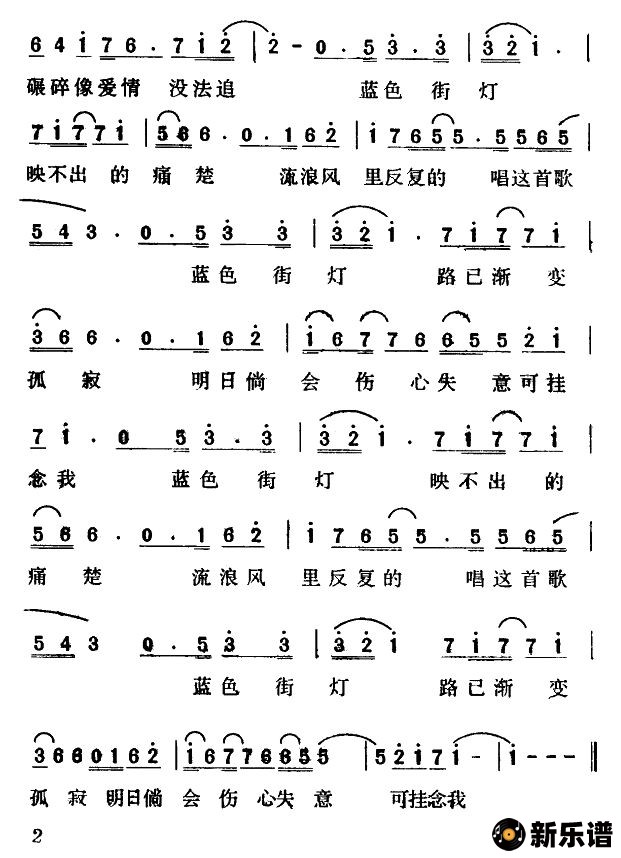 6 4 i 7 6 · 7 i 2 | 2 - 0 · 5 3 · 3 | 3 2 i · |
碾碎像爱情 没法追 蓝色 街 灯
7 i 7 7 i | 5 6 6 · 0 · 1 6 2 | i 7 6 5 5 · 5 5 6 5 |
映不出 的 痛 楚 流浪风 里反复的 唱这首歌
5 4 3 · 0 · 5 3 3 | 3 2 i · 7 i 7 7 i |
蓝色 街 灯 路已渐 变
3 6 6 · 0 · 1 6 2 | i 6 7 7 6 6 5 5 2 i |
孤 寂 明日倘 会 伤 心失 意可挂
7 i · 0 5 3 · 3 | 3 2 i · 7 i 7 7 i |
念我 蓝色 街 灯 映不出 的
5 6 6 · 0 · 1 6 2 | i 7 6 5 5 · 5 5 6 5 |
痛 楚 流浪风 里反复的 唱这首歌
5 4 3 0 · 5 3 3 | 3 2 i 7 i 7 7 i |
蓝色 街 灯 路已渐 变
3 6 6 0 1 6 2 | i 6 7 7 6 6 5 5 | 5 2 i 7 i - | i - - - ‖
孤 寂 明日倘 会 伤 心失 意 可挂念我
2
新乐谱